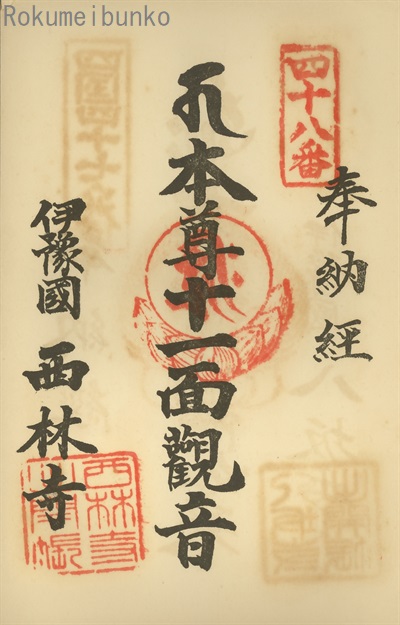 Rokumeibunko
四十八番
奉納經
本尊十一面觀音
伊豫國 西林寺
西林寺